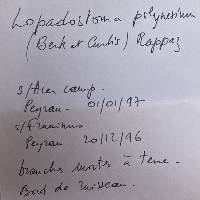 Lopadostoma polynesium
(Berk et Curtis) Rappaz
s/Acer camp.
Peyran 01/01/97
s/Fraxinus
Peyran 20/12/96
branches mortes à terre.
Bord de ruisseau.